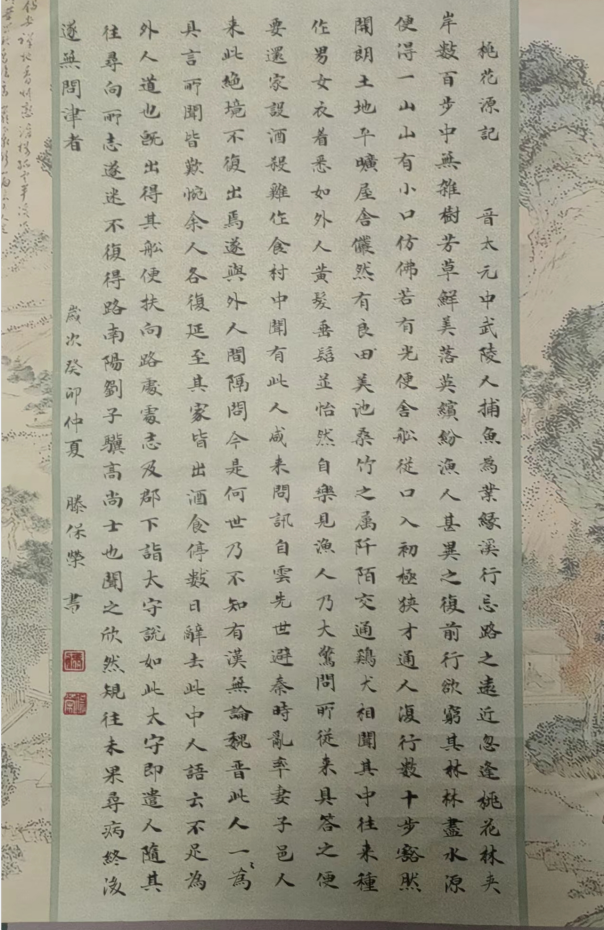 桃花源記 晉太元中武陵人捕魚為業緣溪行忘路之遠近忽逢桃花林夾
岸數百步中無雜樹芳草鮮美落英繽紛漁人甚異之復前行欲窮其林林盡水源
便得一山山有小口仿佛若有光便舍船從口入初極狹才通人復行數十步豁然
開朗土地平曠屋舍儼然有良田美池桑竹之属阡陌交通鷄犬相聞其中往来種
作男女衣着悉如外人黄髮垂髫並怡然自樂見漁人乃大驚問所從来具答之便
要還家設酒殺雞作食村中聞有此人咸来問訊自雲先世避秦時亂率妻子邑人
来此絶境不復出焉遂與外人間隔問今是何世乃不知有漢無論魏晉此人一為
具言所聞皆歎惋余人各復延至其家皆出酒食停數日辭去此中人語云不足為
外人道也既出得其船便扶向路處處志及郡下詣太守説如此太守即遣人隨其
往尋向所志遂迷不復得路南陽劉子驥高尚士也聞之欣然規往未果尋病終後
遂無問津者 歲次癸卯仲夏 滕保榮 書